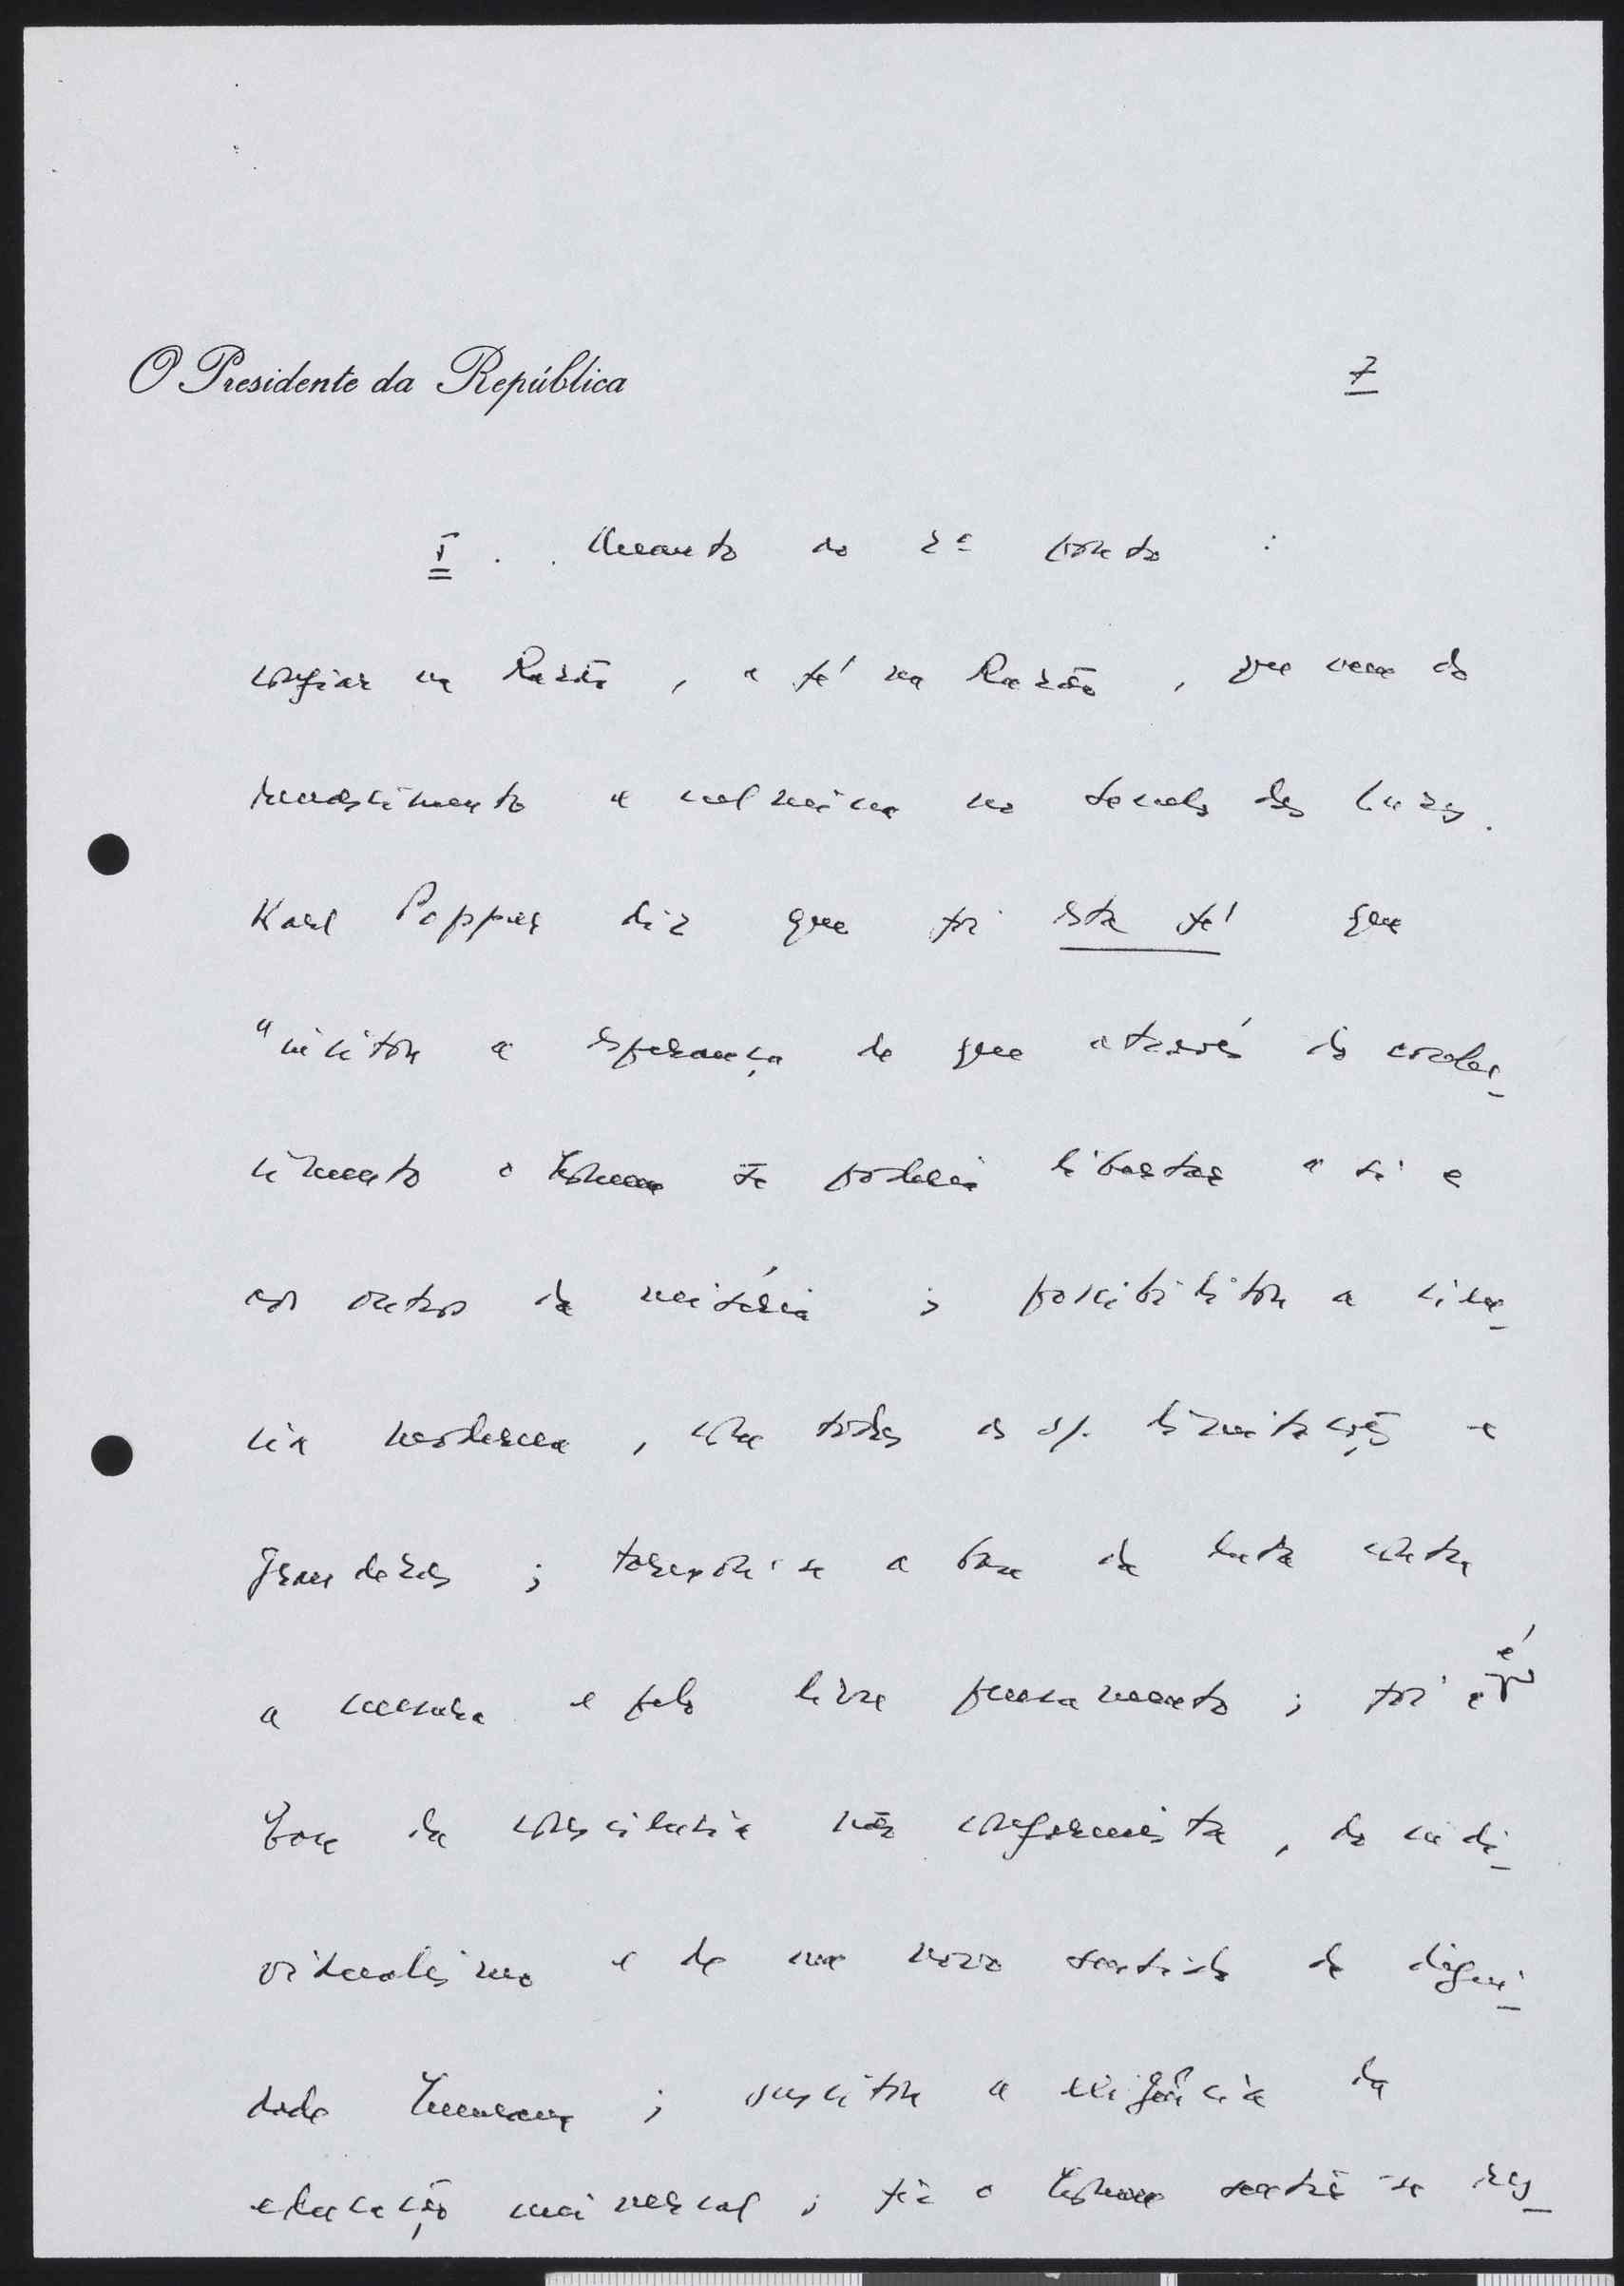 O Presidente da República
7
I. Quanto ao 2º ponto :
confiar na Razão, a fé na Razão, que vem do
renascimento e culmina no seculo das luzes.
Karl Popper diz que foi esta fé que
"incitou a esperança de que através do conhe-
cimento o homem se poderia libertar a si e
aos outros da miséria ; possibilitou a ciên-
cia moderna, com todas as s/. limitações e
grandezas ; tornou-se a base da luta contra
a censura e pelo livre pensamento ; foi
base da consciência não conformista, do indi-
vidualismo e de um novo sentido de digni-
dade humana ; suscitou a exigência da
educação universal ; fez o homem sentir-se res-